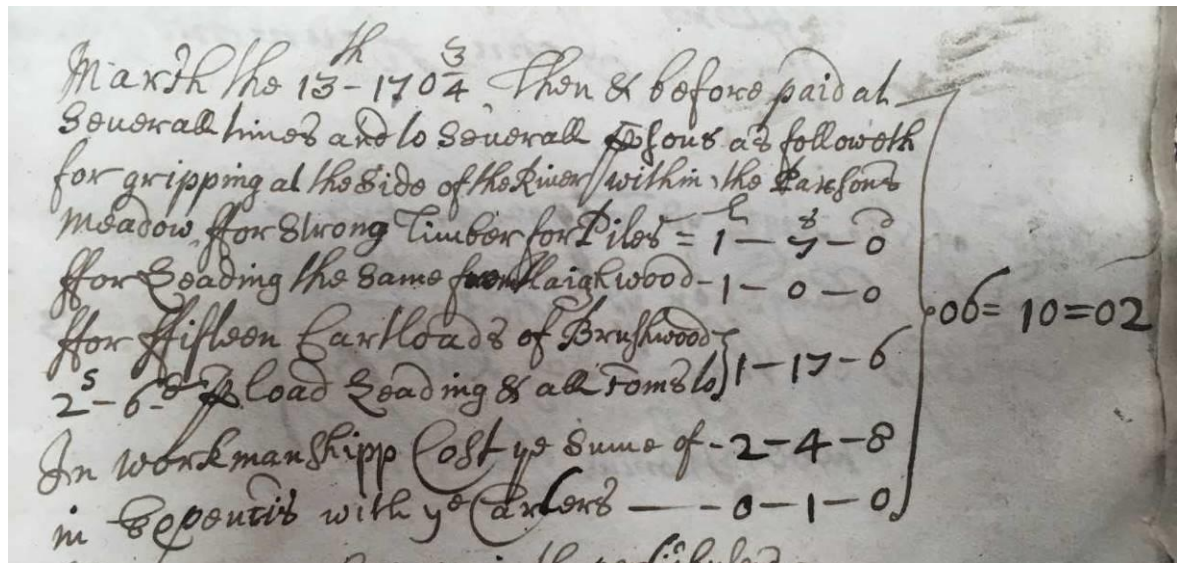 March the 13th - 170¾ Then & before paid at
Severall times and to Severall psons as followeth
for gripping at the Side of the River within the Parsons
Meadow, ffor Strong Timber for Piles = 1 l - 7 s - 0 d
ffor Leading the Same from Haighwood - 1 - 0 - 0
ffor ffifteen Cartloads of Brushwood
2s - 6d p load Leading & all Coms to 1 - 17 - 6
06 = 10 = 02
In workmanshipp Cost ye Sume of - 2 - 4 - 8
in Expencis with ye Carters - 0 - 1 - 0